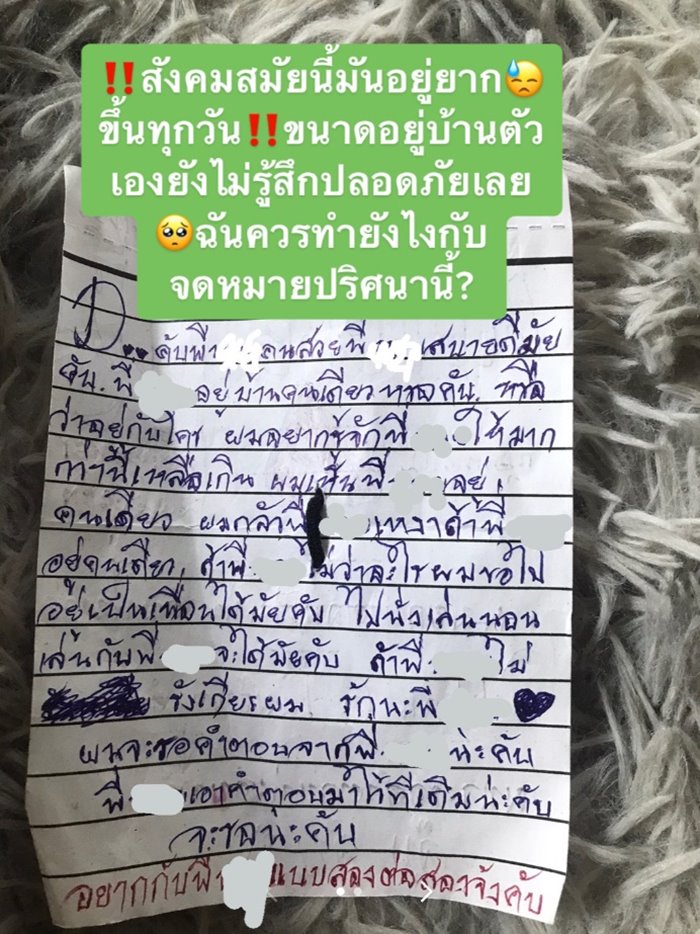 ‼️สังคมสมัยนี้มันอยู่ยาก😓
ขึ้นทุกวัน‼️ขนาดอยู่บ้านตัว
เองยังไม่รู้สึกปลอดภัยเลย
🥺ฉันควรทำยังไงกับ
จดหมายปริศนานี้?
คับพี่ คนสวยพี่ สบายดีมัย
คับ. พี่ อยู่บ้านคนเดียวหรอคับ. หรือ
ว่าอยู่กับใคร ผมอยากรู้จักพี่ ให้มาก
กว่านี้เหลือเกิน ผมเห็นพี่ อยู่.
คนเดียว ผมกลัวพี่ เหงาถ้าพี่
อยู่คนเดียว. ถ้าพี่ ไม่ว่าอะไรผมขอไป
อยู่เป็นเพื่อนได้มัยคับ ไปนั่งเล่นนอน
เล่นกับพี่ จะได้มัยคับ ถ้าพี่. ไม่
รังเกียรผม รักนะพี่ ♥
ผมจะรอคำตอบจากพี่. น่ะคับ
พี่ เอาคำตอบมาไว้ที่เดิมน่ะคับ
จะรอนะคับ
อยากกับพี่ แบบสองต่อสองจังคับ